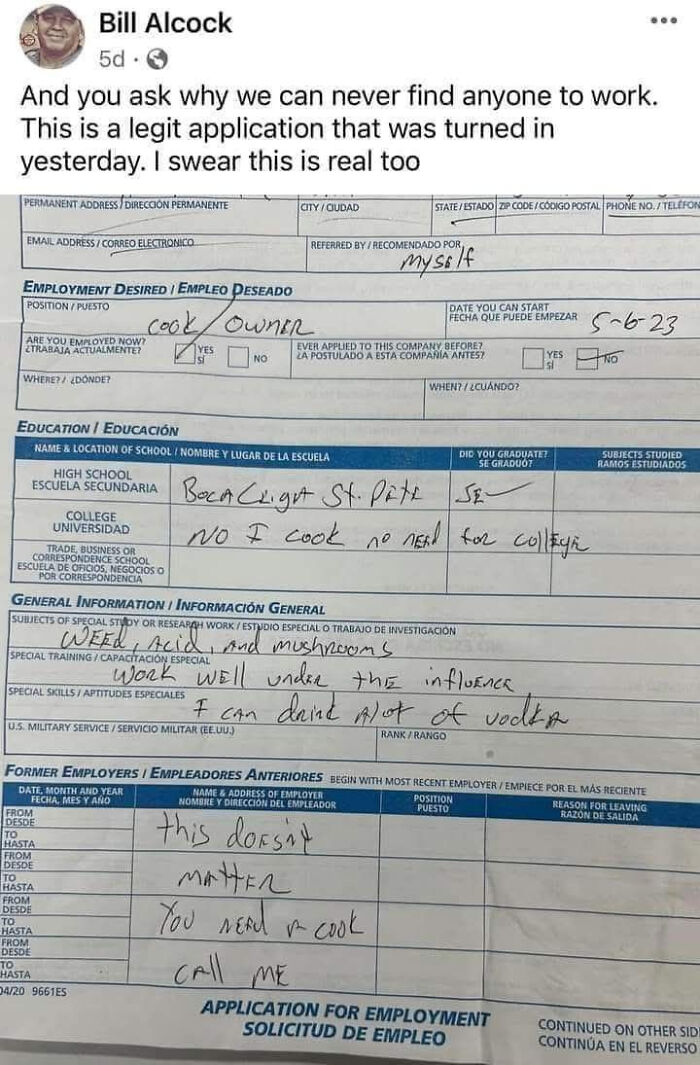 Bill Alcock
5d ·
And you ask why we can never find anyone to work.
This is a legit application that was turned in
yesterday. I swear this is real too
PERMANENT ADDRESS / DIRECCIÓN PERMANENTE CITY / CIUDAD STATE / ESTADO ZIP CODE / CÓDIGO POSTAL PHONE NO. / TELÉFON
EMAIL ADDRESS / CORREO ELECTRONICO REFERRED BY / RECOMENDADO POR
myself
EMPLOYMENT DESIRED / EMPLEO DESEADO
POSITION / PUESTO DATE YOU CAN START
FECHA QUE PUEDE EMPEZAR 5-6-23
cook/owner
ARE YOU EMPLOYED NOW? YES NO EVER APPLIED TO THIS COMPANY BEFORE? YES NO
¿TRABAJA ACTUALMENTE? SÍ ¿A POSTULADO A ESTA COMPAÑIA ANTES? SÍ
WHERE? / ¿DÓNDE? WHEN? / ¿CUÁNDO?
EDUCATION / EDUCACIÓN
NAME & LOCATION OF SCHOOL / NOMBRE Y LUGAR DE LA ESCUELA DID YOU GRADUATE? SUBJECTS STUDIED
SE GRADUÓ? RAMOS ESTUDIADOS
HIGH SCHOOL
ESCUELA SECUNDARIA St. Pete
COLLEGE
UNIVERSIDAD NO I cook no need for college
TRADE, BUSINESS OR
CORRESPONDENCE SCHOOL
ESCUELA DE OFICIOS, NEGOCIOS O
POR CORRESPONDENCIA
GENERAL INFORMATION / INFORMACIÓN GENERAL
SUBJECTS OF SPECIAL STUDY OR RESEARCH WORK / ESTUDIO ESPECIAL O TRABAJO DE INVESTIGACIÓN
WEED, Acid, and mushrooms
SPECIAL TRAINING / CAPACITACIÓN ESPECIAL
Work well under the influence
SPECIAL SKILLS / APTITUDES ESPECIALES
I can drink alot of vodka
U.S. MILITARY SERVICE / SERVICIO MILITAR (EE.UU.) RANK / RANGO
FORMER EMPLOYERS / EMPLEADORES ANTERIORES BEGIN WITH MOST RECENT EMPLOYER / EMPIECE POR EL MÁS RECIENTE
DATE, MONTH AND YEAR NAME & ADDRESS OF EMPLOYER POSITION REASON FOR LEAVING
FECHA, MES Y AÑO NOMBRE Y DIRECCIÓN DEL EMPLEADOR PUESTO RAZÓN DE SALIDA
FROM
DESDE this doesn't
TO
HASTA
FROM
DESDE
TO matter
HASTA
FROM
DESDE You need a cook
TO
HASTA
FROM
DESDE
TO call me
HASTA
04/20 9661ES
APPLICATION FOR EMPLOYMENT
SOLICITUD DE EMPLEO
CONTINUED ON OTHER SID
CONTINÚA EN EL REVERSO